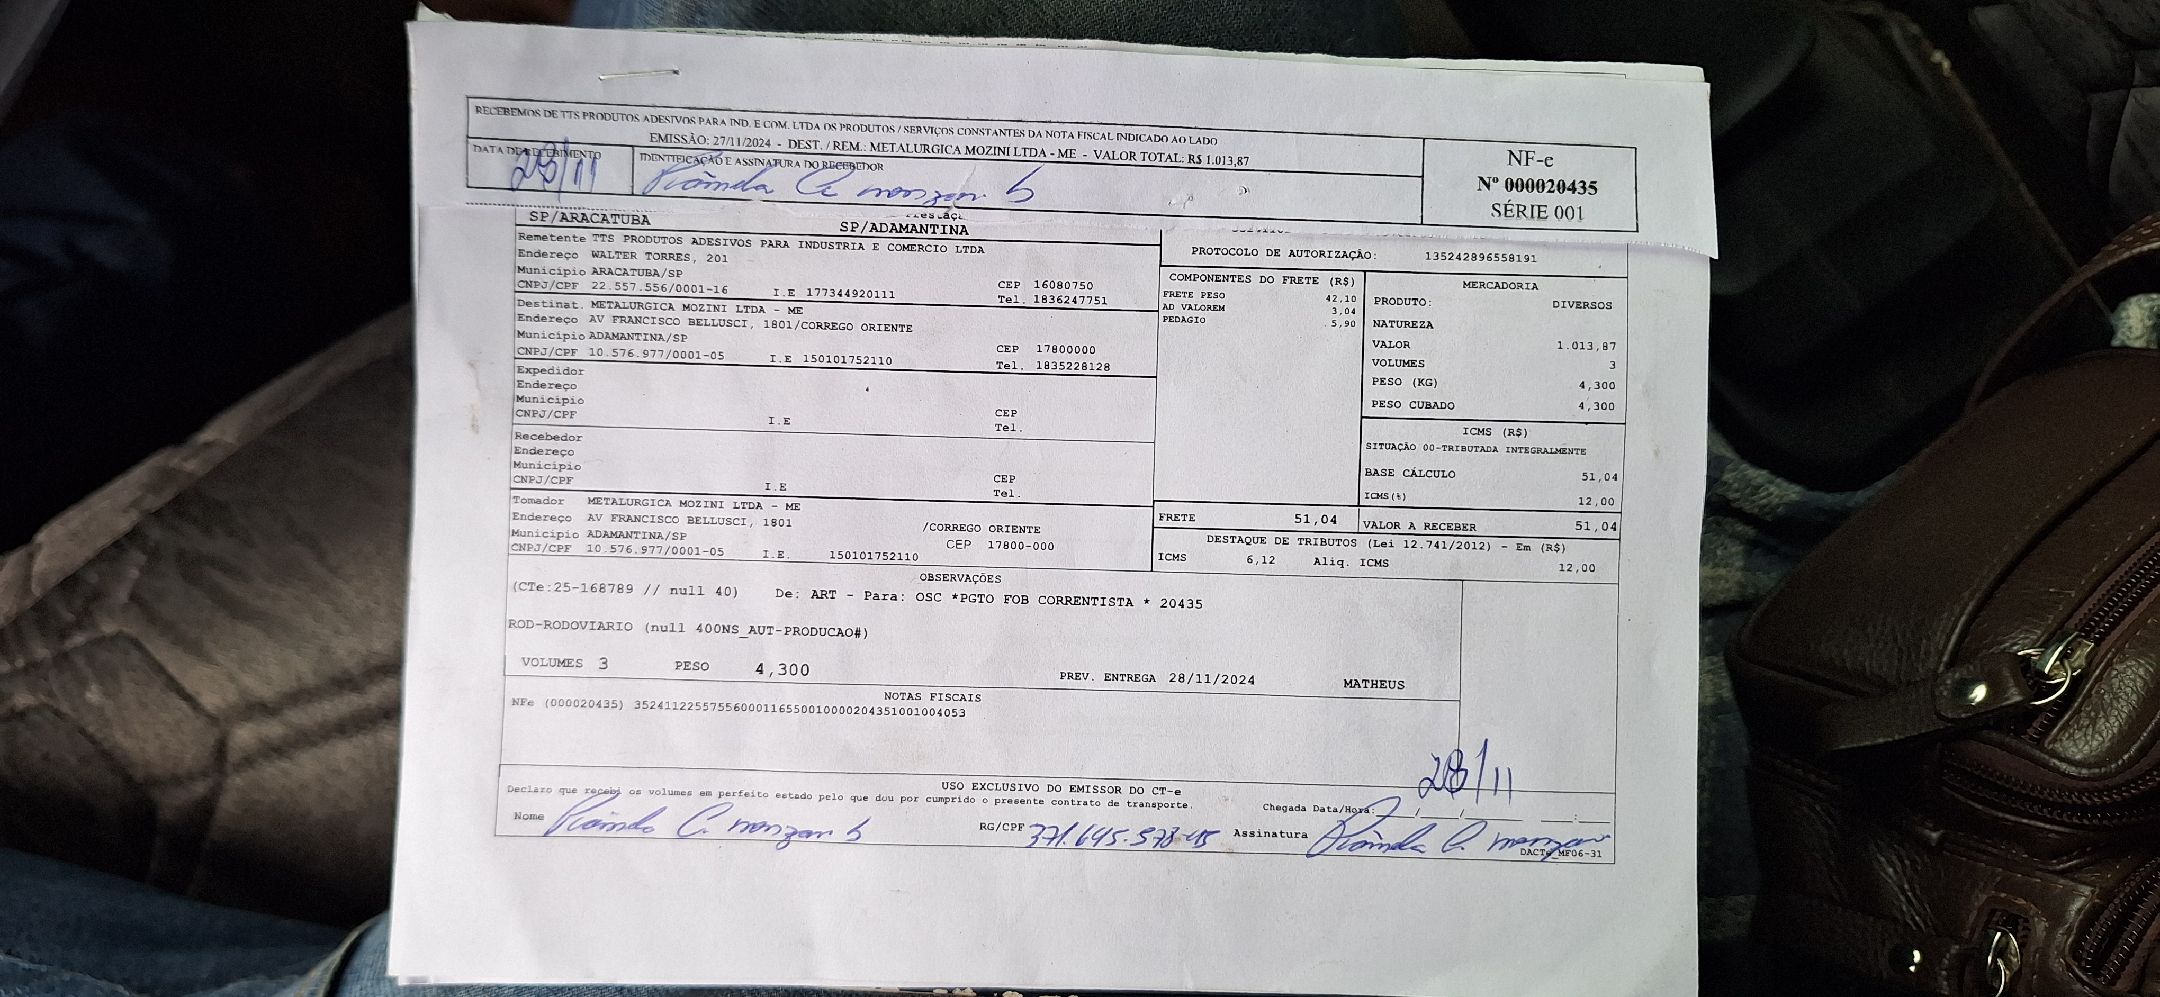 RECEBEMOS DE TTS PRODUTOS ADESIVOS PARA IND. E COM. LTDA OS PRODUTOS / SERVIÇOS CONSTANTES DA NOTA FISCAL INDICADO AO LADO
EMISSÃO: 27/11/2024 - DEST. / REM.: METALURGICA MOZINI LTDA - ME - VALOR TOTAL: R$ 1.013,87
DATA DE RECEBIMENTO
28/11
IDENTIFICAÇÃO E ASSINATURA DO RECEBEDOR
NF-e
Nº 000020435
SÉRIE 001
SP/ARACATUBA
SP/ADAMANTINA
Remetente TTS PRODUTOS ADESIVOS PARA INDUSTRIA E COMERCIO LTDA
Endereço WALTER TORRES, 201
Município ARACATUBA/SP CEP 16080750
CNPJ/CPF 22.557.556/0001-16 I.E 177344920111 Tel. 1836247751
Destinat. METALURGICA MOZINI LTDA - ME
Endereço AV FRANCISCO BELLUSCI, 1801/CORREGO ORIENTE
Município ADAMANTINA/SP CEP 17800000
CNPJ/CPF 10.576.977/0001-05 I.E 150101752110 Tel. 1835228128
Expedidor
Endereço
Município
CNPJ/CPF I.E CEP
Tel.
Recebedor
Endereço
Município
CNPJ/CPF I.E CEP
Tel.
Tomador METALURGICA MOZINI LTDA - ME
Endereço AV FRANCISCO BELLUSCI, 1801 /CORREGO ORIENTE
Município ADAMANTINA/SP CEP 17800-000
CNPJ/CPF 10.576.977/0001-05 I.E. 150101752110
PROTOCOLO DE AUTORIZAÇÃO: 135242896558191
COMPONENTES DO FRETE (R$)
FRETE PESO 42,10
AD VALOREM 3,04
PEDAGIO 5,90
MERCADORIA
PRODUTO: DIVERSOS
NATUREZA
VALOR 1.013,87
VOLUMES 3
PESO (KG) 4,300
PESO CUBADO 4,300
ICMS (R$)
SITUAÇÃO 00-TRIBUTADA INTEGRALMENTE
BASE CÁLCULO 51,04
ICMS(%) 12,00
FRETE 51,04
VALOR A RECEBER 51,04
DESTAQUE DE TRIBUTOS (Lei 12.741/2012) - Em (R$)
ICMS 6,12 Aliq. ICMS 12,00
OBSERVAÇÕES
(CTe:25-168789 // null 40) De: ART - Para: OSC *PGTO FOB CORRENTISTA * 20435
ROD-RODOVIARIO (null 400NS_AUT-PRODUCAO#)
VOLUMES 3 PESO 4,300 PREV. ENTREGA 28/11/2024 MATHEUS
NOTAS FISCAIS
NFe (000020435) 35241122557556000116550010000204351001004053
28/11
USO EXCLUSIVO DO EMISSOR DO CT-e
Declaro que recebi os volumes em perfeito estado pelo que dou por cumprido o presente contrato de transporte.
Chegada Data/Hora: __/__/____ __:__
Nome
RG/CPF
Assinatura
DACTe_MF06-31